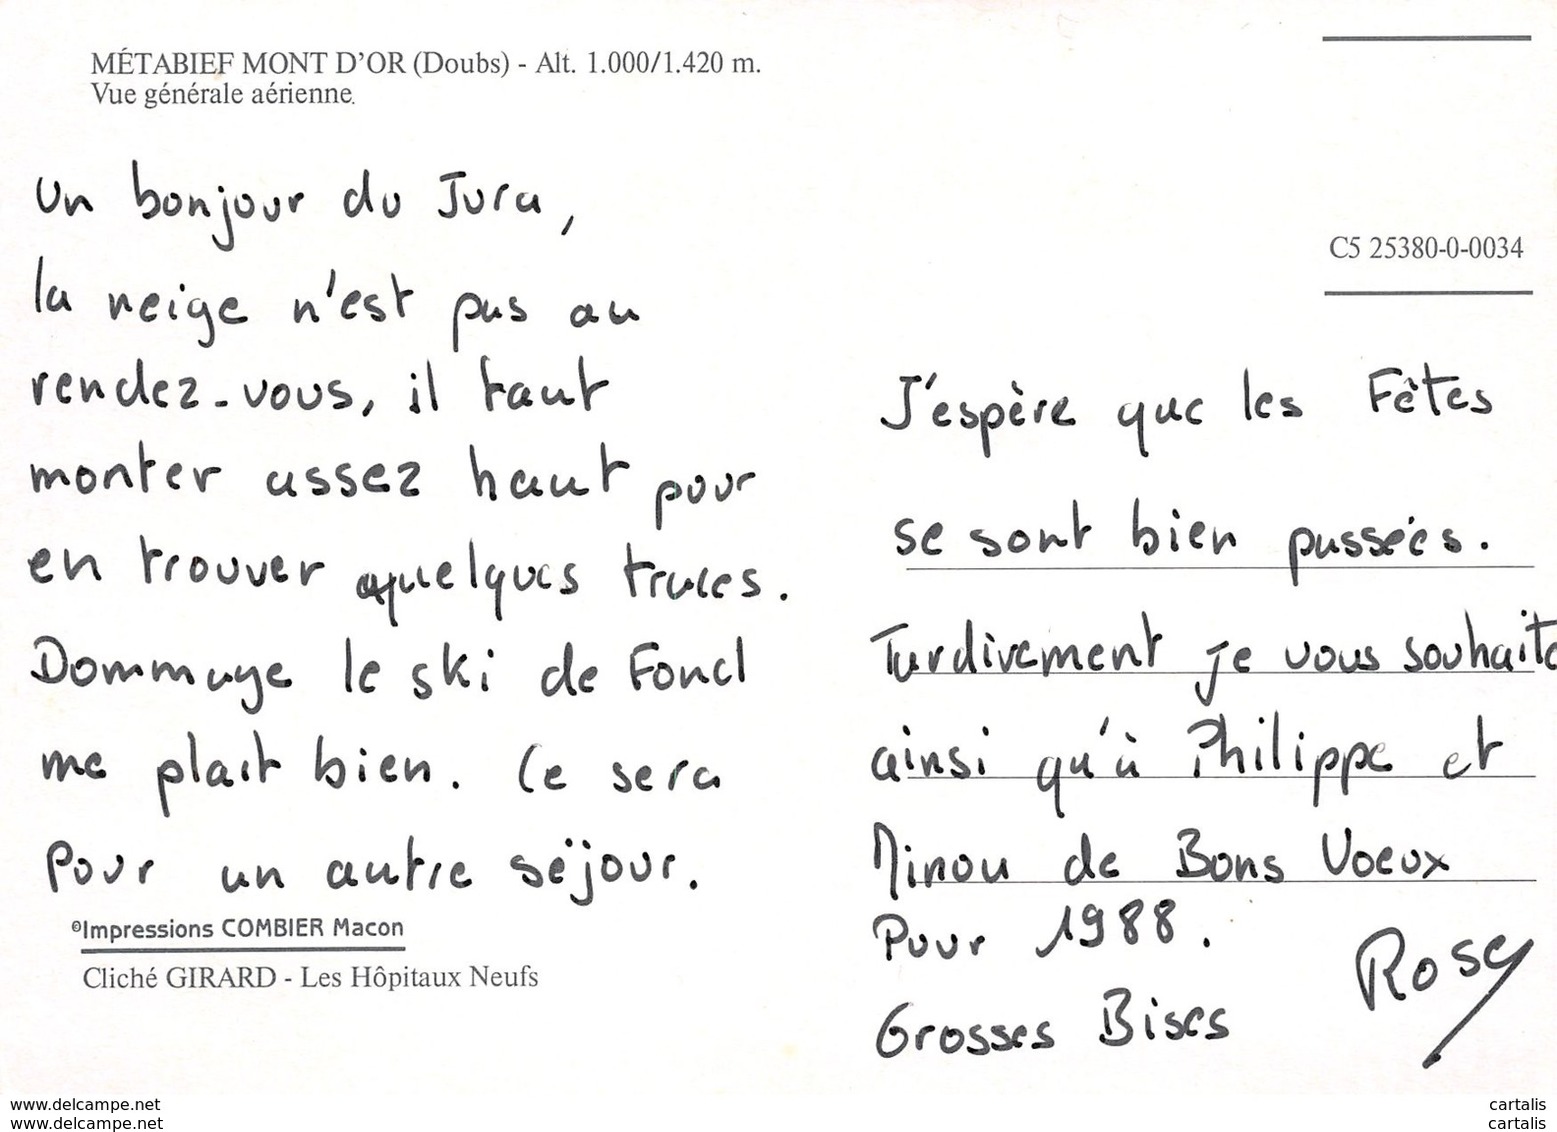 MÉTABIEF MONT D'OR (Doubs) - Alt. 1.000/1.420 m.
Vue générale aérienne.
Un bonjour du Jura,
la neige n'est pas au
rendez-vous, il faut
monter assez haut pour
en trouver quelques traces.
Dommage le ski de Fond
me plait bien. Ce sera
Pour un autre séjour.
©Impressions COMBIER Macon
Cliché GIRARD - Les Hôpitaux Neufs
C5 25380-0-0034
J'espère que les Fêtes
se sont bien passées.
Tardivement je vous souhaite
ainsi qu'à Philippe et
Minou de Bons Voeux
Pour 1988.
Grosses Bises
Rosy
www.delcampe.net
www.delcampe.net
cartalis
cartalis